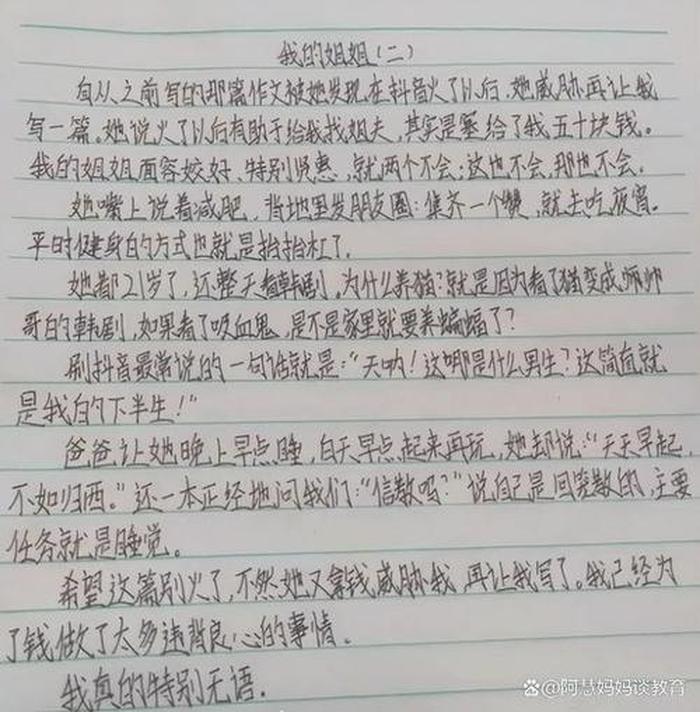 我的姐姐(二)
自从之前写的那篇作文被她发现在抖音火了以后,她威胁再让我
写一篇。她说火了以后有助于给我找姐夫,其实是塞给了我五十块钱。
我的姐姐面容姣好、特别贤惠,就两个不会:这也不会,那也不会。
她嘴上说着减肥,背地里发朋友圈:集齐一个赞,就去吃夜宵。
平时健身的方式也就是抬抬杠了。
她都21岁了,还整天看韩剧。为什么养猫?就是因为看了猫变成师帅
哥的韩剧,如果看了吸血鬼,是不是家里就要养蝙蝠了?
刷抖音最常说的一句话就是:“天呐!这哪是什么男生?这简直就
是我的下半生!”
爸爸让她晚上早点睡,白天早点起来再玩,她却说:“天天早起,
不如归西。”还一本正经地问我们:“信教吗?”说自己是回笼教的,主要
任务就是睡觉。
希望这篇别火了,不然她又拿钱威胁我,再让我写了。我已经为
了钱做了太多违背良心的事情。
我真的特别无语.
@阿慧妈妈谈教育